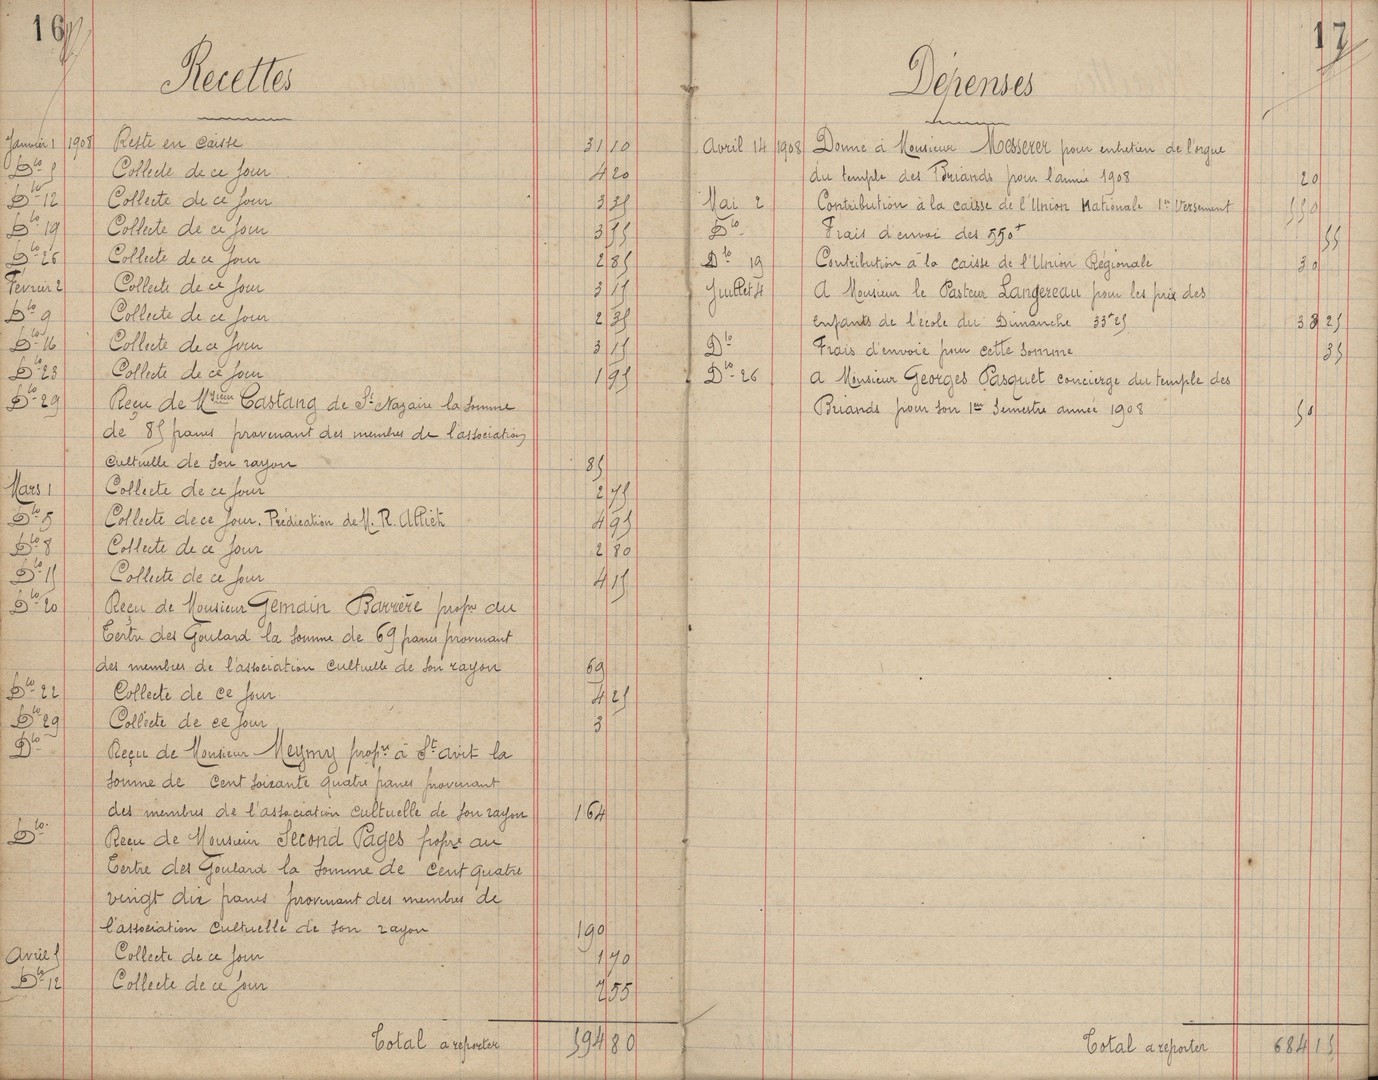 16
Recettes
Janvier 1 1908 Reste en caisse 31 10
Dto 5 Collecte de ce Jour 4 20
Dto 12 Collecte de ce Jour 3 35
Dto 19 Collecte de ce Jour 3 55
Dto 26 Collecte de ce Jour 2 85
Février 2 Collecte de ce Jour 3 15
Dto 9 Collecte de ce Jour 2 35
Dto 16 Collecte de ce Jour 3 15
Dto 23 Collecte de ce Jour 1 95
Dto 29 Reçu de Msieur Castang de St Nazaire la somme
de 85 francs provenant des membres de l'association
cultuelle de son rayon 85
Mars 1 Collecte de ce Jour 2 75
Dto 5 Collecte de ce Jour. Prédication de M. R. Alliet 4 95
Dto 8 Collecte de ce Jour 2 80
Dto 15 Collecte de ce Jour 4 15
Dto 20 Reçu de Monsieur Gemain Barrère propre du
Tertre des Goulard la somme de 69 francs provenant
des membres de l'association cultuelle de son rayon 69
Dto 22 Collecte de ce Jour 4 25
Dto 29 Collecte de ce Jour 3
Dto Reçu de Monsieur Meymy propre à St avit la
somme de cent soixante quatre francs provenant
des membres de l'association cultuelle de son rayon 164
Dto Reçu de Monsieur Second Pages propre au
Tertre des Goulard la somme de cent quatre
vingt dix francs provenant des membres de
l'association cultuelle de son rayon 190
Avril 5 Collecte de ce Jour 1 70
Dto 12 Collecte de ce Jour 7 55
Total a reporter 594 80
17
Dépenses
Avril 14 1908 Donne à Monsieur Messerer pour entretien de l'orgue
du temple des Briands pour l'année 1908 20
Mai 2 Contribution à la caisse de l'Union Nationale 1er Versement 550
Dto Frais d'envoi des 550f 55
Dto 19 Contribution à la caisse de l'Union Régionale 30
Juillet 4 A Monsieur le Pasteur Langereau pour les prix des
enfants de l'école du Dimanche 33f25 33 25
Dto Frais d'envoie pour cette somme 35
Dto 26 A Monsieur Georges Pasquet concierge du temple des
Briands pour son 1er Semestre année 1908 50
Total a reporter 684 15